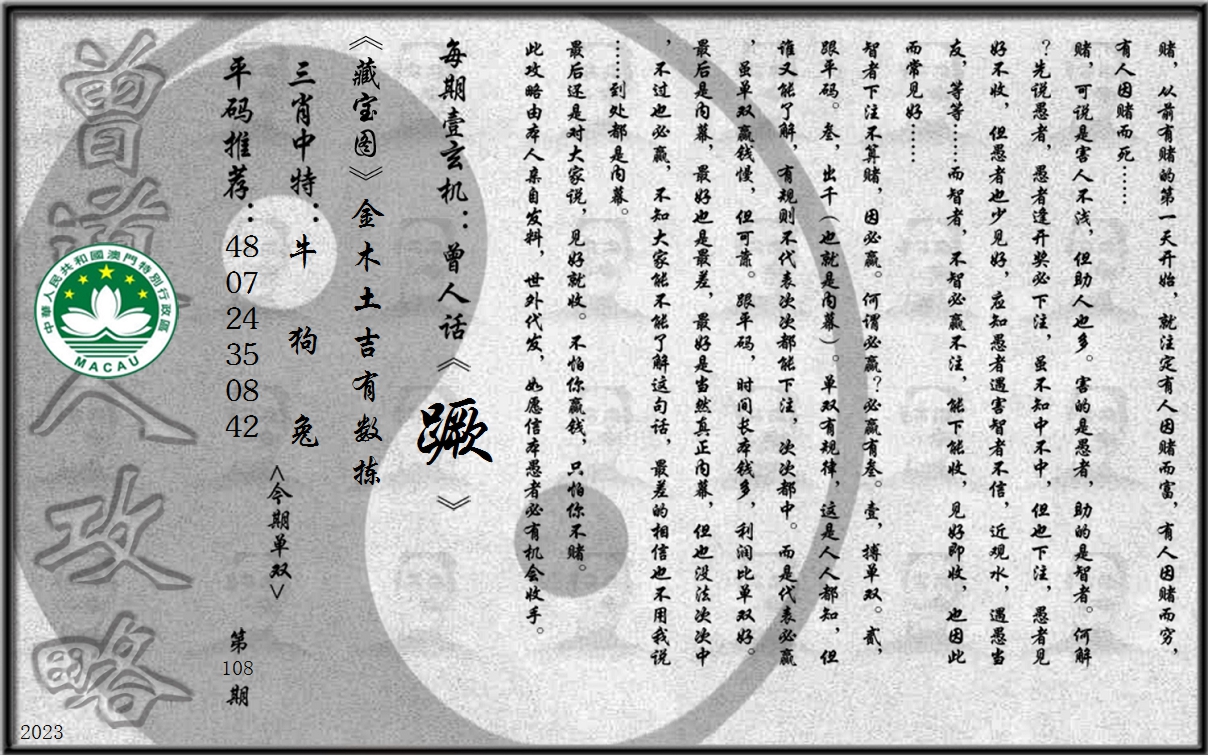 赌，从前有赌的第一天开始，就注定有人因赌而富，有人因赌而穷，
有人因赌而死……
赌，可说是害人不浅，但助人也多。害的是愚者，助的是智者。何解
？先说愚者，愚者逢开奖必下注，虽不知中不中，但也下注，愚者见
好不收，但愚者也少见好，应知愚者遇害智者不信，近观水，遇愚当
友，等等……而智者，不智必赢不注，能下能收，见好即收，也因此
而常见好……
智者下注不算赌，因必赢。何谓必赢？必赢有叁。壹，搏单双。贰，
跟平码。叁，出千（也就是内幕）。单双有规律，这是人人都知，但
谁又能了解，有规则不代表次次都能下注，次次都中。而是代表必赢
，虽单双赢钱慢，但可靠。跟平码，时间长本钱多，利润比单双好。
最后是内幕，最好也是最差，最好是当然真正内幕，但也没法次次中
，不过也必赢，不知大家能不能了解这句话，最差的相信也不用我说
……到处都是内幕。
最后还是对大家说，见好就收。不怕你赢钱，只怕你不赌。
此攻略由本人亲自发料，世外代发，如愿信本愚者必有机会收手。
每期壹玄机：曾人话《蹶》
《藏宝图》金木土吉有数拣
三肖中特：牛 狗 兔
<今期单双>
平码推荐：48 07 24 35 08 42
第108期
曾道人攻略
中華人民共和國澳門特別行政區
MACAU
2023